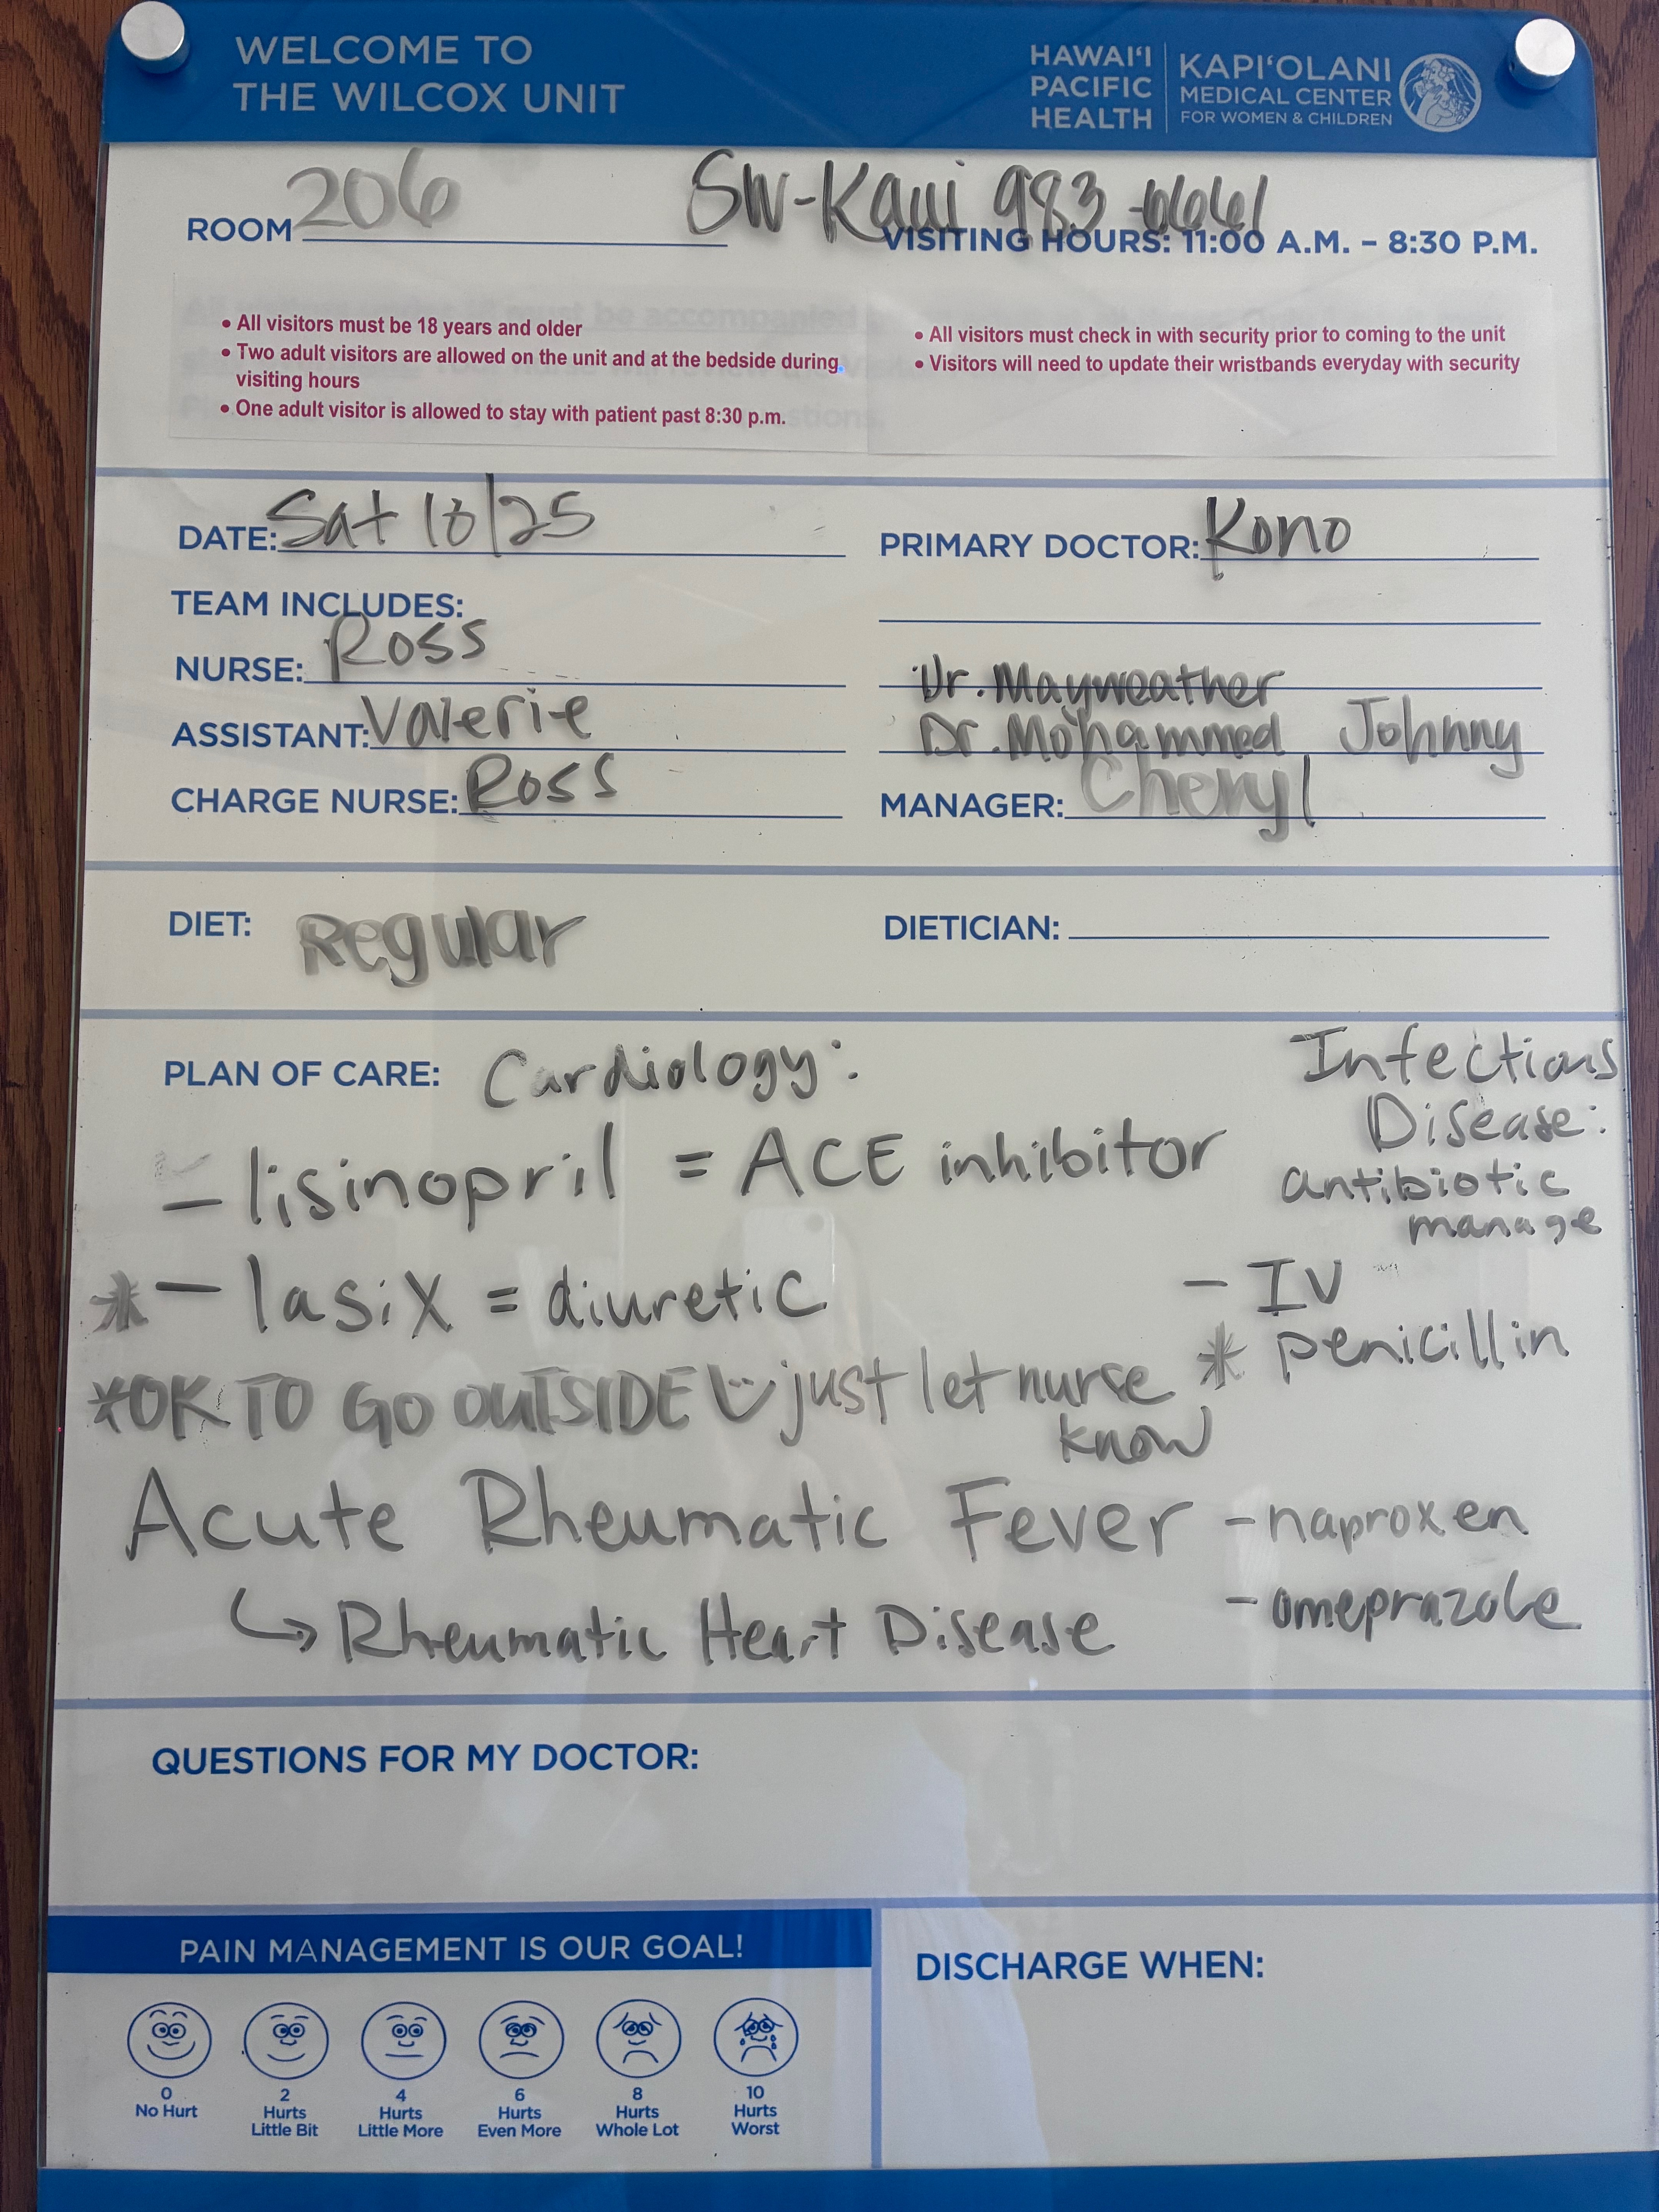 WELCOME TO
THE WILCOX UNIT
HAWAIʻI
PACIFIC
HEALTH
KAPIʻOLANI
MEDICAL CENTER
FOR WOMEN & CHILDREN
ROOM 206
SW-Kaui 983-6661
VISITING HOURS: 11:00 A.M. – 8:30 P.M.
• All visitors must be 18 years and older
• Two adult visitors are allowed on the unit and at the bedside during
visiting hours
• One adult visitor is allowed to stay with patient past 8:30 p.m.
• All visitors must check in with security prior to coming to the unit
• Visitors will need to update their wristbands everyday with security
DATE: Sat 10/25
PRIMARY DOCTOR: Kono
TEAM INCLUDES:
NURSE: Ross
Dr. Mayweather
ASSISTANT: Valerie
Dr. Mohammed Johnny
CHARGE NURSE: Ross
MANAGER: Cheryl
DIET: Regular
DIETICIAN:
PLAN OF CARE: Cardiology:
- lisinopril = ACE inhibitor
* - lasix = diuretic
*OK TO GO OUTSIDE just let nurse
know
Infectious
Disease:
antibiotic
manage
- IV
* penicillin
Acute Rheumatic Fever
↳ Rheumatic Heart Disease
- naproxen
- omeprazole
QUESTIONS FOR MY DOCTOR:
PAIN MANAGEMENT IS OUR GOAL!
0
No Hurt
2
Hurts
Little Bit
4
Hurts
Little More
6
Hurts
Even More
8
Hurts
Whole Lot
10
Hurts
Worst
DISCHARGE WHEN: